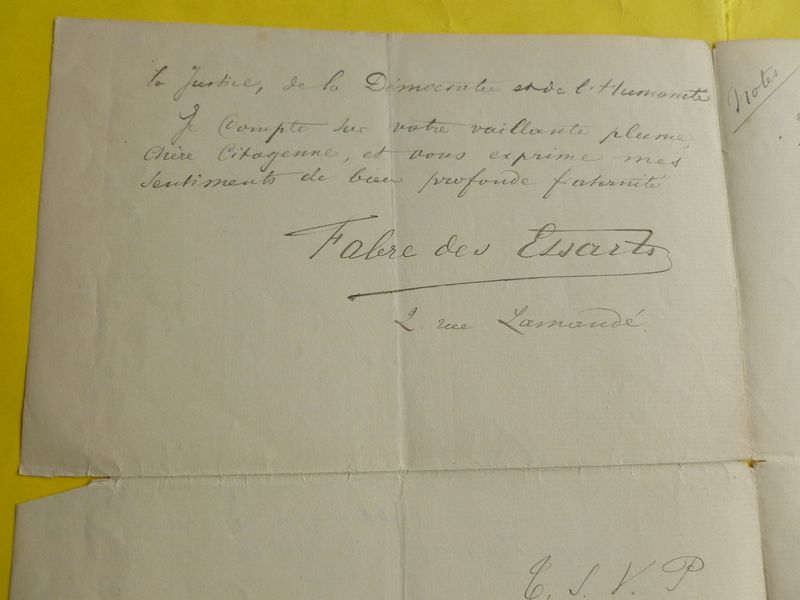 la Justice, de la Démocratie et de l'Humanité
Je compte sur votre vaillante plume,
chère Citoyenne, et vous exprime mes
sentiments de bien profonde fraternité
Fabre des Essarts
2. rue Lamandé.
Notes
T. S. V. P